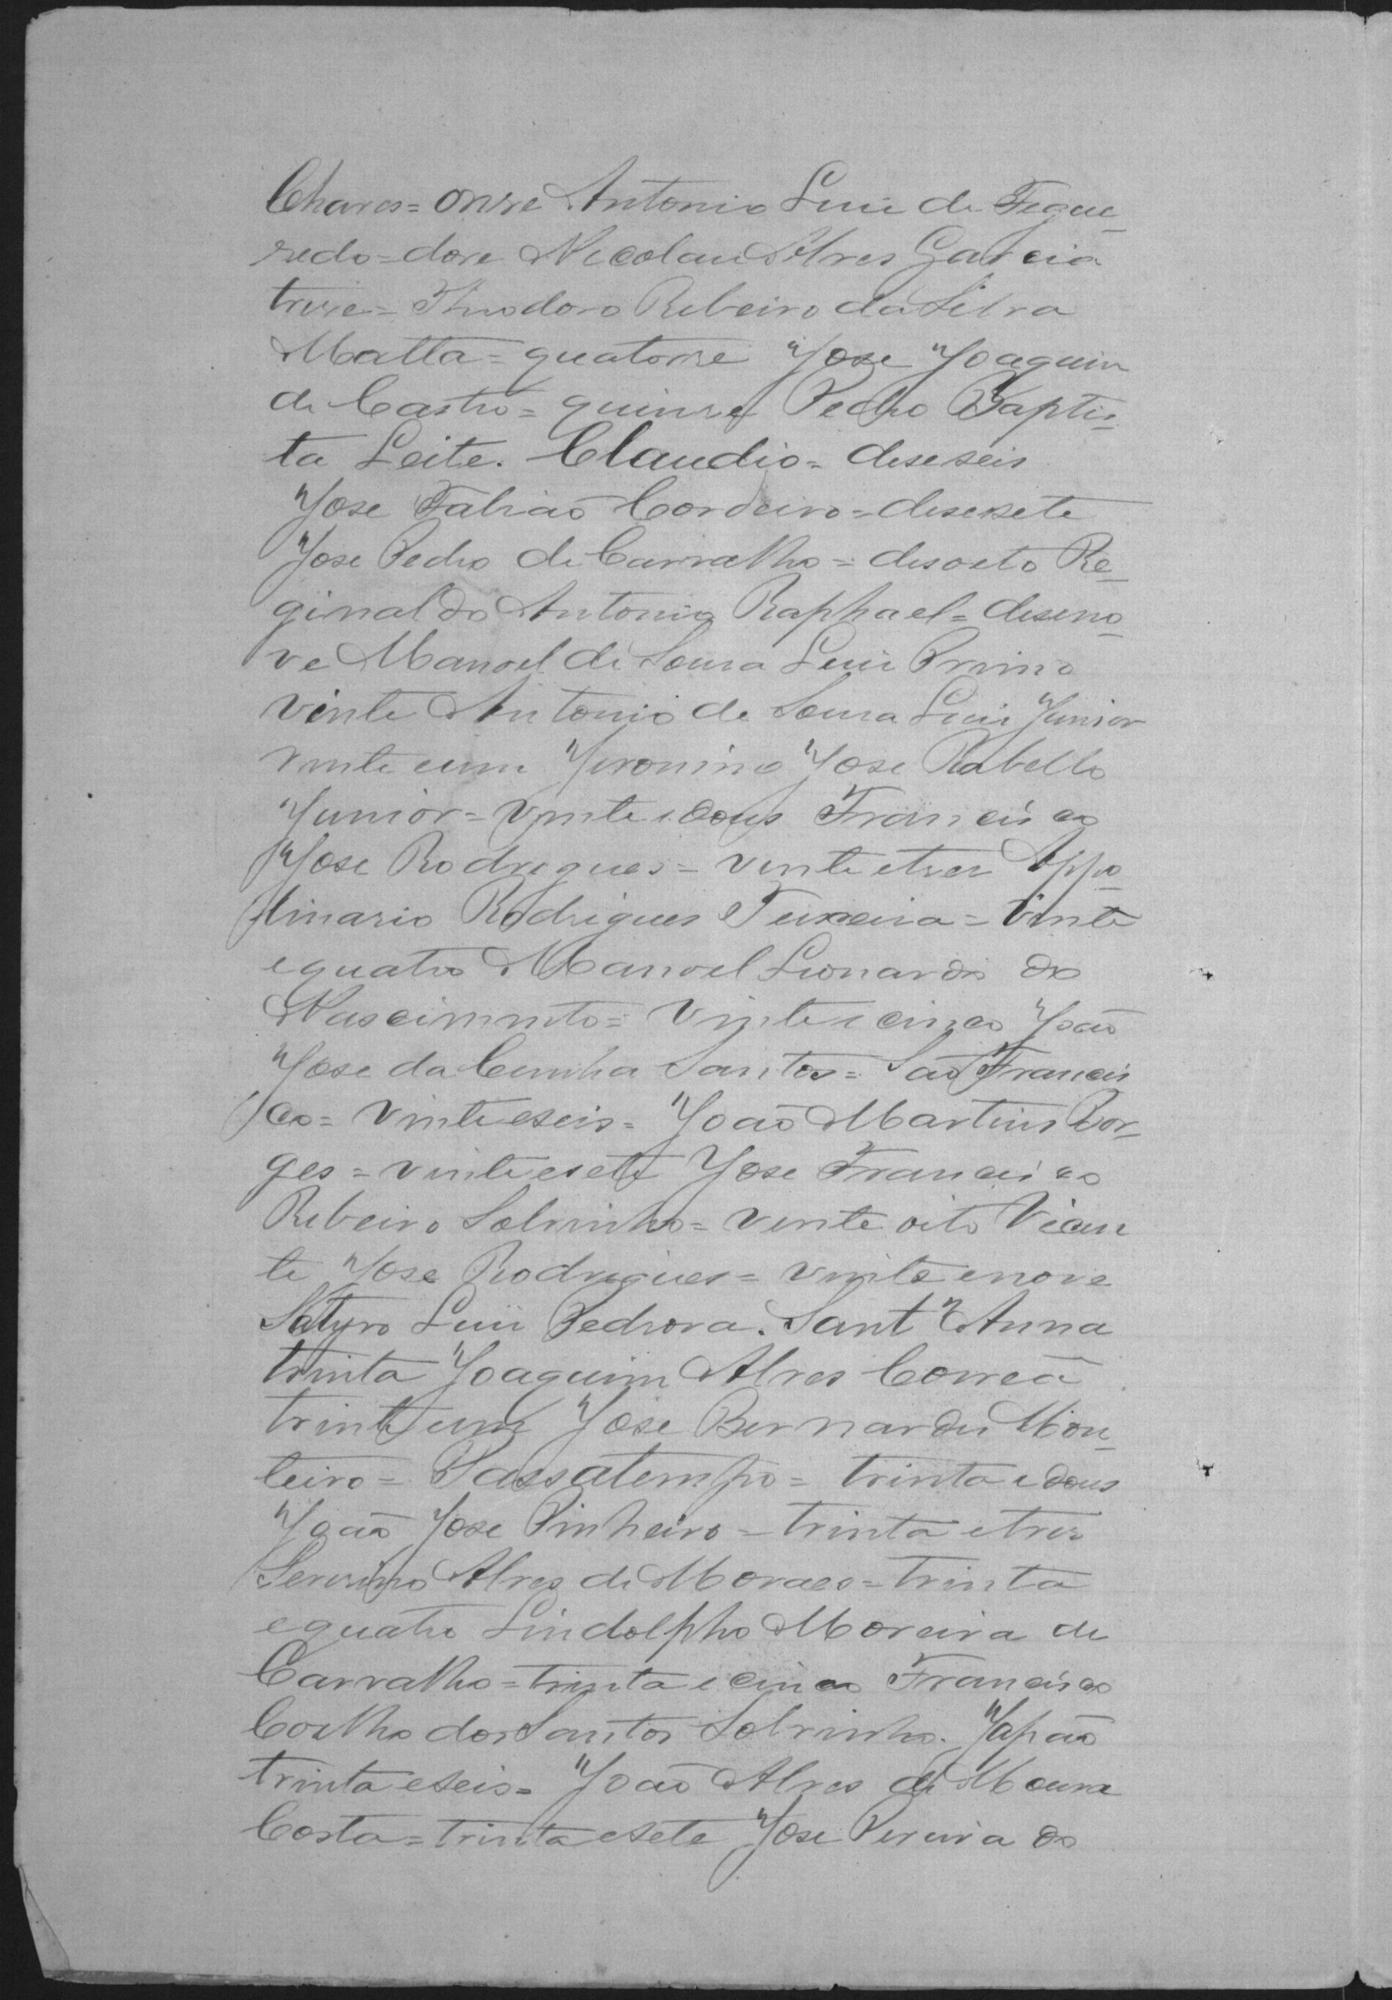 Chaves = onze Antonio Luiz de Figue-
redo = doze Nicolau Alves Garcia
treze = Theodoro Ribeiro da Silva
Malta = quatorze José Joaquim
de Castro = quinze Pedro Baptis-
ta Leite. Claudio = deseseis
José Fabião Cordeiro = desesete
José Pedro de Carvalho = desoito Re-
ginaldo Antonio Raphael = deseno-
ve Manoel de Souza Luiz Primo
vinte Antonio de Souza Luiz Junior
vinte e um Jeronimo José Rabello
Junior = vinte e dous Francisco
José Rodrigues = vinte e tres Appo-
linario Rodrigues Teixeira = vinte
e quatro Manoel Leonardo do
Nascimento = vinte e cinco João
José da Cunha Santos = São Francis
co = vinte e seis = João Martins Bor-
ges = vinte e sete José Francisco
Ribeiro Sobrinho = vinte oito Vicen
te José Rodrigues = vinte e nove
Satyro Luiz Pedroza. Sant'Anna
trinta Joaquim Alves Correa
trinta e um José Bernardes Mon-
teiro = Passatempo = trinta e dous
João José Pinheiro = trinta e tres
Severino Alves de Moraes = trinta
e quatro Lindolpho Moreira de
Carvalho = trinta e cinco Francisco
Coelho dos Santos Sobrinho. Japão
trinta e seis = João Alves de Moura
Costa = trinta e sete José Pereira do